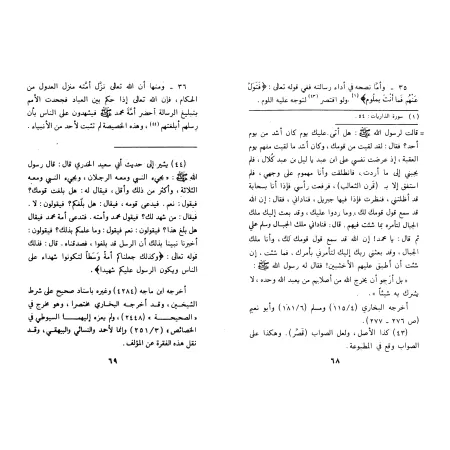 ٣٥ - وأمّا نصحه في أداء رسالته ففي قوله تعالى : ﴿فَتَوَلَّ
عَنْهُم فَمَا أَنْتَ بِمَلُومٍ﴾ (١) ،ولو اقتصر (٤٣) لتوجه عليه اللوم .
(١) سورة الذاريات : ٥٤ .
= قالت لرسول الله ﷺ : هل أتى عليك يوم كان أشد من يوم
أحد؟ فقال : لقد لقيت من قومك ، وكان أشد ما لقيت منهم يوم
العقبة ، إذ عرضت نفسي على ابن عبد يا ليل بن عبد كُلال ، فلم
يجبني إلى ما أردت ، فانطلقت وأنا مهموم على وجهي ، فلم
استفق إلا بـ (قَرن الثعالب) ، فرفعت رأسي فإذا أنا بسحابة
قد أظلتني ، فنظرت فإذا فيها جبريل ، فناداني ، فقال : إن الله
قد سمع قول قومك لك ، وما ردوا عليك ، وقد بعث إليك ملك
الجبال لتأمره بما شئت فيهم . قال : فناداني ملك الجبال وسلم علي
ثم قال : يا محمد! إن الله قد سمع قول قومك لك ، وأنا ملك
الجبال ، وقد بعثني ربك إليك لتأمرني بأمرك ، فما شئت ، إن
شئت أن أطبق عليهم الأخشبين! فقال له رسول الله ﷺ :
« بل أرجو أن يخرج الله من أصلابهم من يعبد الله وحده لا
يشرك به شيئاً » .
أخرجه البخاري (١١٥/٤) ومسلم (١٨١/٦) وأبو نعيم
(ص ٢٧٦ - ٢٧٧) .
(٤٣) كذا الأصل ، ولعل الصواب (قَصَّر) . وهكذا على
الصواب وقع في المطبوعة .
٦٨
٣٦ - ومنها أن الله تعالى نَزَّل أمَّته منزل العدول من
الحكام ، فإن الله تعالى إذا حكم بين العباد فجحدت الأمم
بتبليغ الرسالة أحضر أمة محمد ﷺ فيشهدون على الناس بأن
رسلهم أبلغتهم (٤٤) ، وهذه الخصيصة لم تثبت لأحد من الأنبياء .
(٤٤) يشير إلى حديث أبي سعيد الخدري قال : قال رسول
الله ﷺ : يجيء النبي ومعه الرجلان ، ويجيء النبي ومعه
الثلاثة ، وأكثر من ذلك وأقل ، فيقال له : هل بلغت قومك؟
فيقول : نعم . فيدعى قومه ، فيقال : هل بلّغكم؟ فيقولون : لا .
فيقال : من شهد لك؟ فيقول : محمد وأمته . فتدعى أمة محمد فيقال
هل بلغ هذا؟ فيقولون : نعم فيقول : وما علمكم بذلك؟ فيقولون :
أخبرنا نبينا بذلك أن الرسل قد بلغوا ، فصدقناه . قال : فذلك
قوله تعالى : ﴿وكذلك جعلناكم أمة وسَطاً لتكونوا شهداء على
الناس ويكون الرسول عليكم شهيداً﴾ .
أخرجه ابن ماجه (٤٢٨٤) وغيره بإسناد صحيح على شرط
الشيخين ، وقد أخرجه البخاري مختصرا ، وهو مخرج في
« الصحيحة » (٢٤٤٨) ، ولم يعزه إليهما السيوطي في
الخصائص » (٢٥١/٣) وإنما لأحمد والنسائي والبيهقي ، وقد
نقل هذه الفقرة عن المؤلف .
٦٩